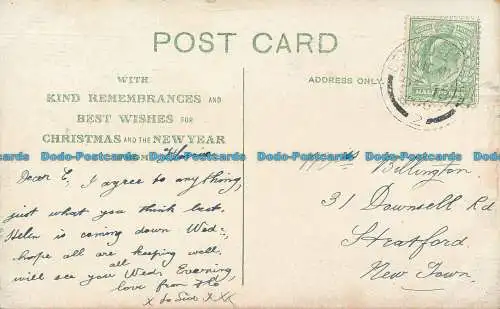 POST CARD
WITH
KIND REMEMBRANCES AND
BEST WISHES FOR
CHRISTMAS AND THE NEW YEAR
FROM
ADDRESS ONLY.
HALFPENNY
Dodo-Postcards Dodo-Postcards Dodo-Postcards Dodo-Postcards Dodo-Postcards Dodo-Postcards
Dear E, I agree to anything,
just what you think best.
Helen is coming down Wed:
hope all are keeping well.
all
will see you Wed: Evening,
love from Flo
X to Sid X XX
Billington
31 Downsell Rd
Stratford
New Town.